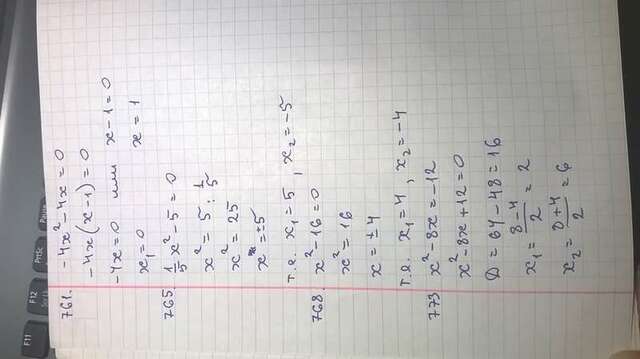 F11 F12 PrtSc Pause
761. -4x² -4x = 0
-4x(x-1) = 0
-4x = 0 или x-1 = 0
x₁ = 0 x = 1
765. 1/5 x² - 5 = 0
x² = 5 : 1/5
x² = 25
x = ±5
т.е. x₁ = 5 , x₂ = -5
768. x² - 16 = 0
x² = 16
x = ±4
т.е. x₁ = 4 , x₂ = -4
773 x² - 8x = -12
x² - 8x + 12 = 0
D = 64 - 48 = 16
x₁ = (8-4)/2 = 2
x₂ = (8+4)/2 = 6